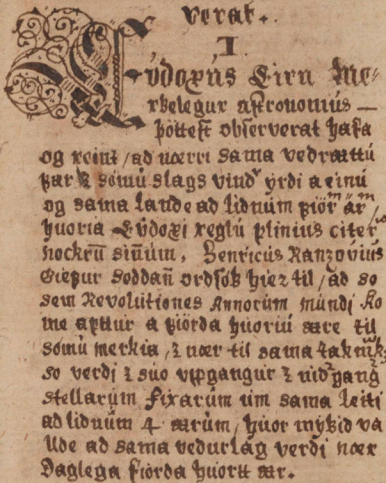 verak.
I
Evdoxús Eirn Me⸗
rkelegur astronomius —
þottest observerat hafa
og reint, ad nærri sama vedrættú
far ⁊ sómú slags vindr ÿrdi a einú
og sama lande ad lidnúm fiörm ár,
huoria Evdoxi reglú plinius citer
nockrū siñum, Henricus Ranzovius
Giefur soddañ ordsök hier til, ad so
sem Revolutiones Annorúm múndi ko
me apttur a fiórda huoriú are til
sömú merkia, ⁊ nær til sama
so verdi ⁊ suo uppgangur ⁊ nidrgang
stellarúm fixarúm um sama leiti
ad lidnúm 4 aarúm, huor mÿkid va
llde ad sama vedurlag verdi nær
Daglega fiórda huortt aar.